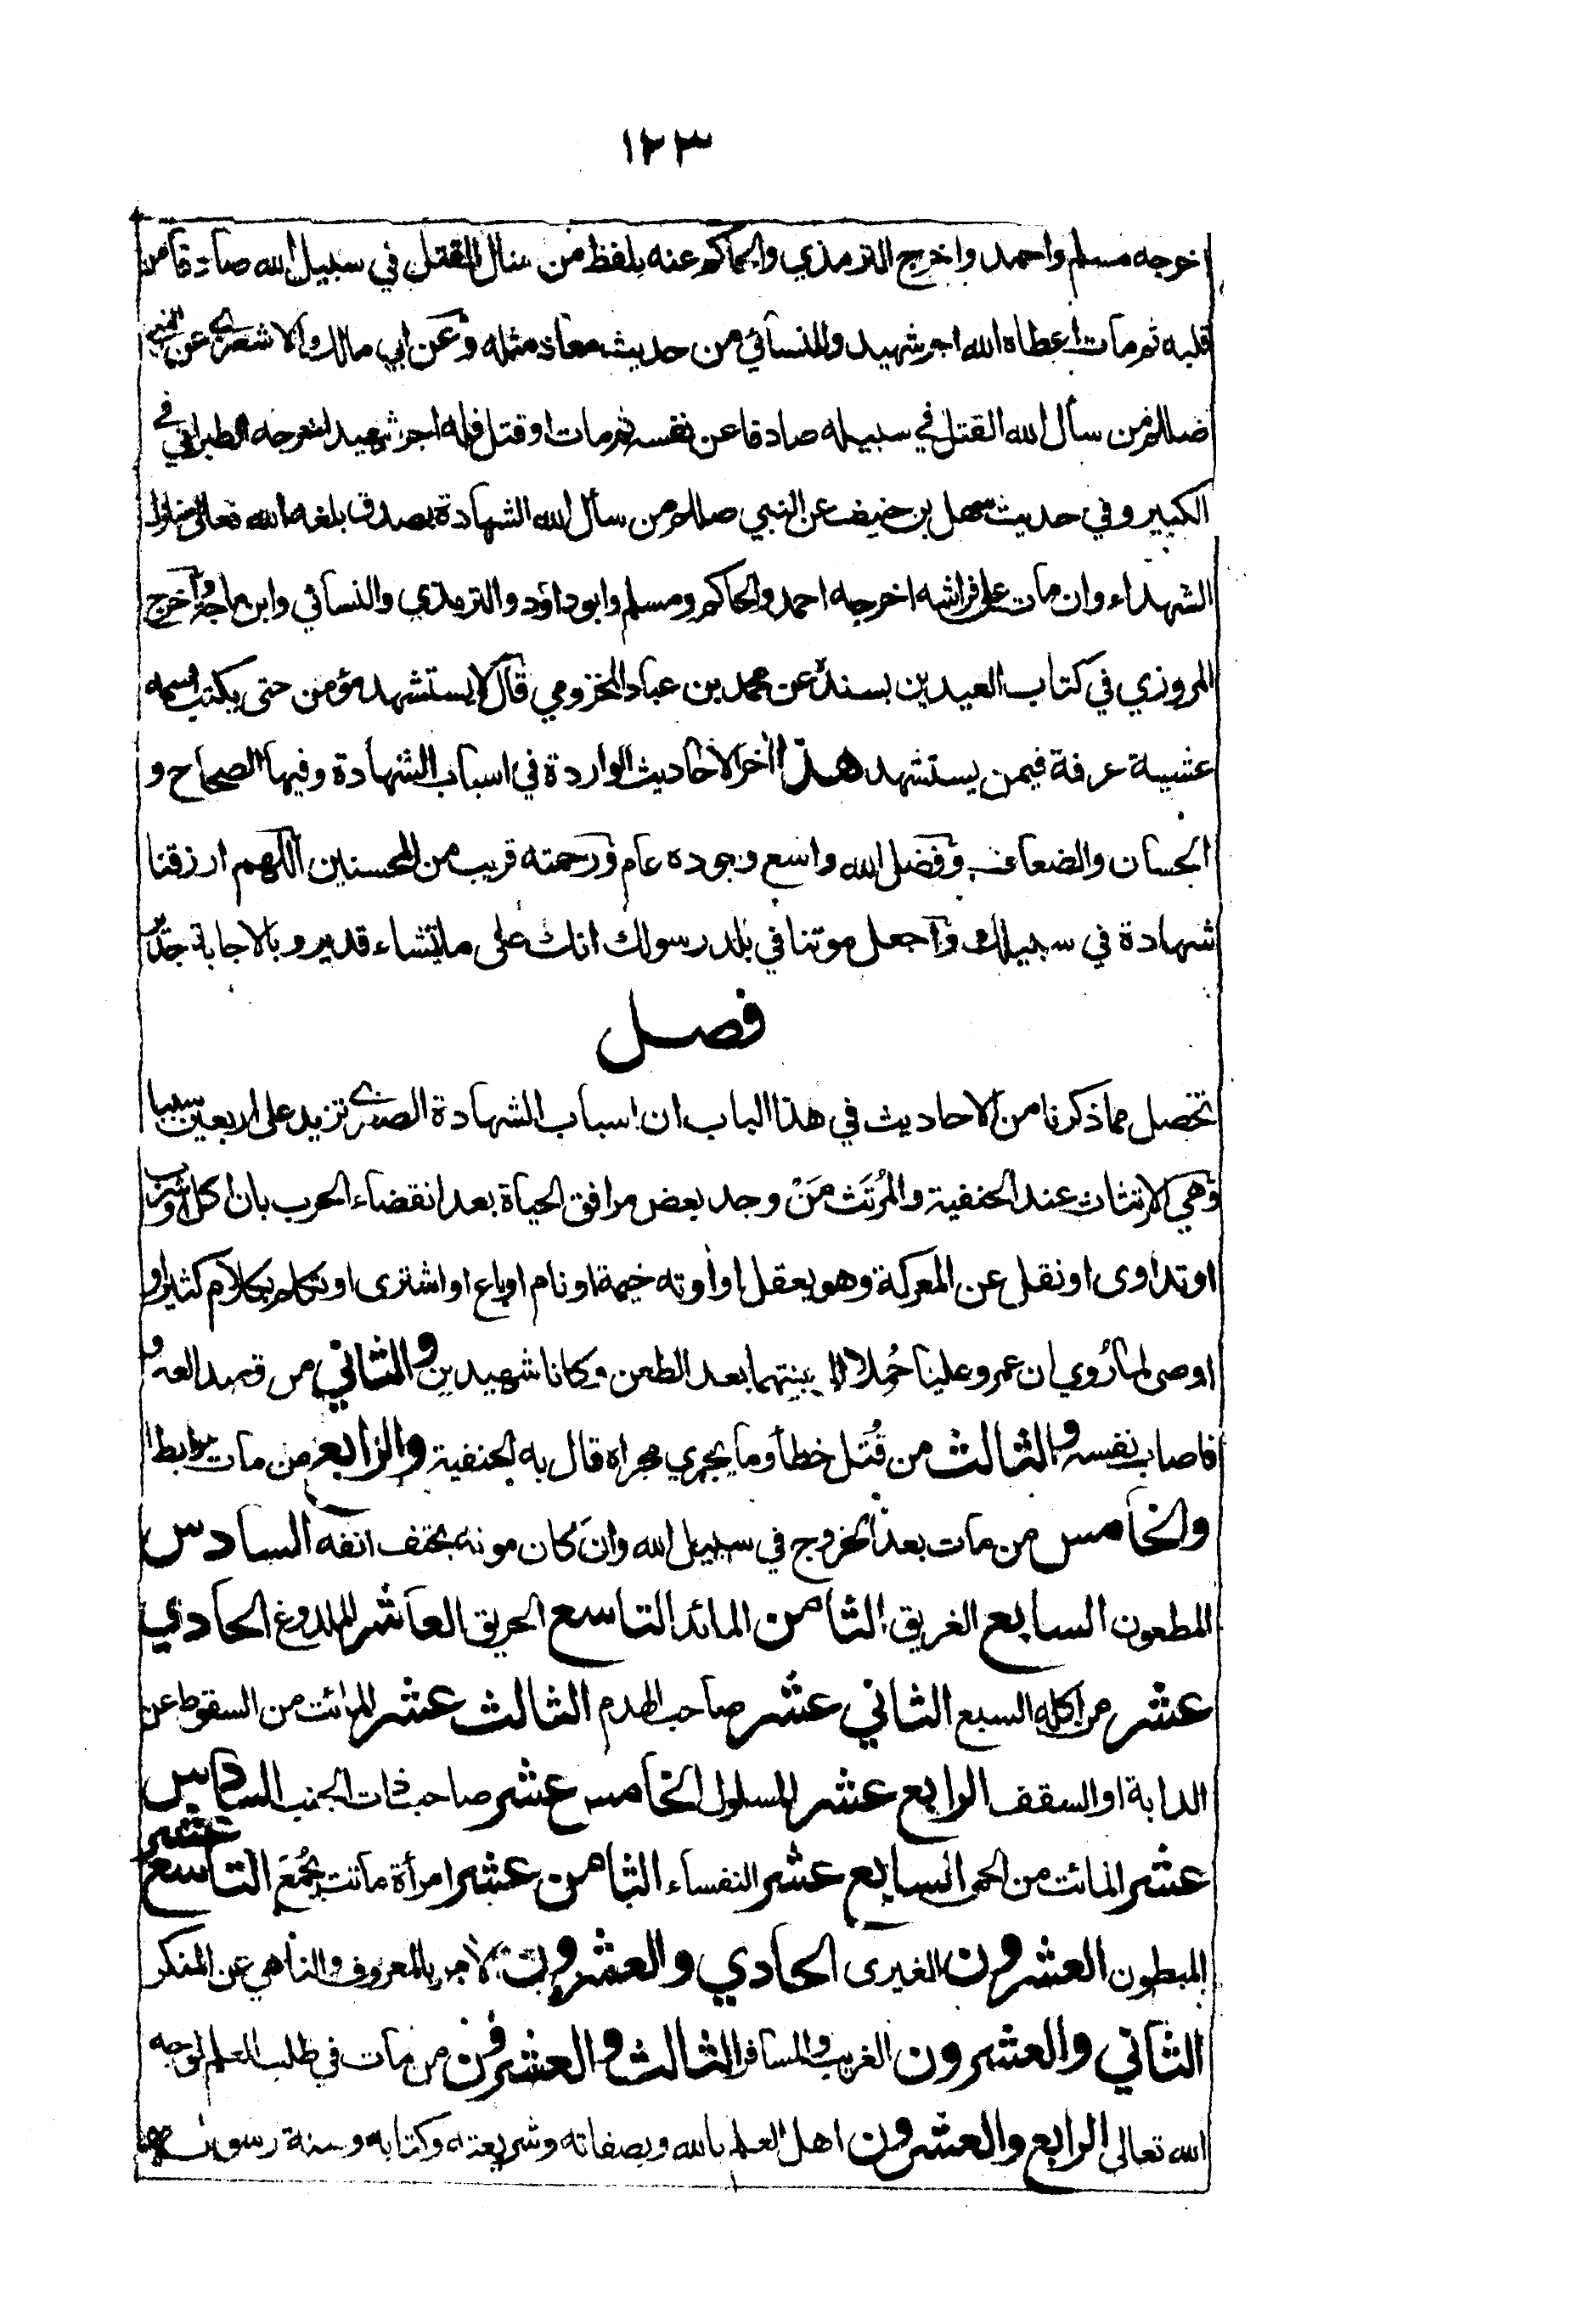 ١٢٣
اخرجه مسلم واحمد واخرج الترمذي والحاكم عنه بلفظ من سئال القتل في سبيل الله صادقا من
قلبه ثم مات اعطاه الله اجر شهيد والنسائي من حديث معاذ مثله وعن ابي مالك الاشعري عن النبي
صللم من سأل الله القتل في سبيله صادقا عن نفسه ثم مات او قتل فله اجر شهيد اخرجه الطبراني في
الكبير وفي حديث سهل بن حنيف عن النبي صللم من سأل الله الشهادة بصدق بلغه الله تعالى منازل
الشهداء وان مات على فراشه اخرجه احمد والحاكم ومسلم وابو داؤد والترمذي والنسائي وابن ماجة واخرج
المروزي في كتاب العيدين بسنده عن محمد بن عباد المخزومي قال لا يستشهد مؤمن حتى يكتب اسمه
عشية عرفة فيمن يستشهد هذا آخر الاحاديث الواردة في اسباب الشهادة وفيها الصحاح و
الحسان والضعاف وفضل الله واسع وجوده عام ورحمته قريب من المحسنين اللهم ارزقنا
شهادة في سبيلك واجعل موتنا في بلد رسولك انك على ما تشاء قدير وبالاجابة جدير
فصل
تحصل مما ذكرنا من الاحاديث في هذا الباب ان اسباب الشهادة الصغرى تزيد على اربعين سببا
وهي الارتثاث عند الحنفية والمُرتَث مَنْ وجد بعض مرافق الحياة بعد انقضاء الحرب بان اكل او شرب
او تداوى او نقل عن المعركة وهو يعقل او أوته خيمة او نام او باع او اشترى او تكلم بكلام كثير او
اوصى لما رُوي ان عمر وعليا حُملا الى بيتهما بعد الطعن وكانا شهيدين والثاني من قصد العدو
فاصاب نفسه والثالث من قُتل خطأ وما يجري مجراه قال به الحنفية والرابع من مات مرابطا
والخامس من مات بعد الخروج في سبيل الله وان كان موته بحتف انفه السادس
المطعون السابع الغريق الثامن المائد التاسع الحريق العاشر الملدوغ الحادي
عشر من اكله السبع الثاني عشر صاحب الهدم الثالث عشر المائت من السقوط عن
الدابة او السقف الرابع عشر المسلول الخامس عشر صاحب ذات الجنب السادس
عشر المائت من الحمى السابع عشر النفساء الثامن عشر امرأة ماتت بجُمَع التاسع عشر
المبطون العشرون الغيرى الحادي والعشرون الآمر بالمعروف والناهي عن المنكر
الثاني والعشرون الغريب والمسافر الثالث والعشرون من مات في طلب العلم لوجه
الله تعالى الرابع والعشرون اهل العلم بالله وبصفاته وشريعته وكتابه وسنة رسوله